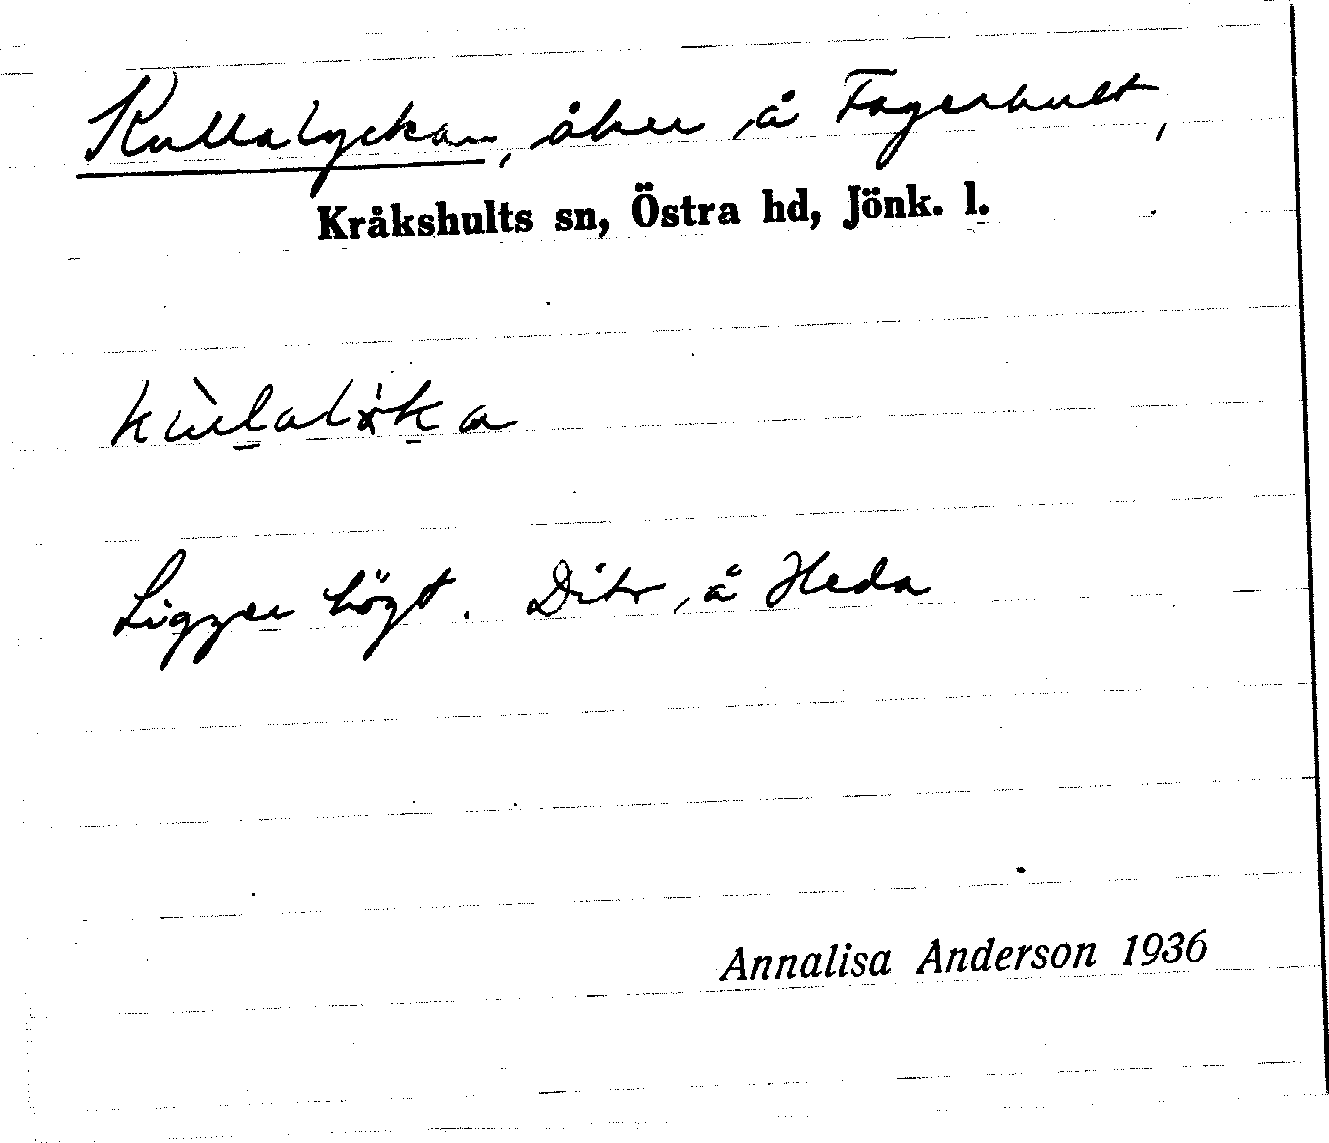 Kullalyckan, åker å Fagerhult,
Kråkshults sn, Östra hd, Jönk. l.
Ligger högt. Dito å Heda
Annalisa Anderson 1936